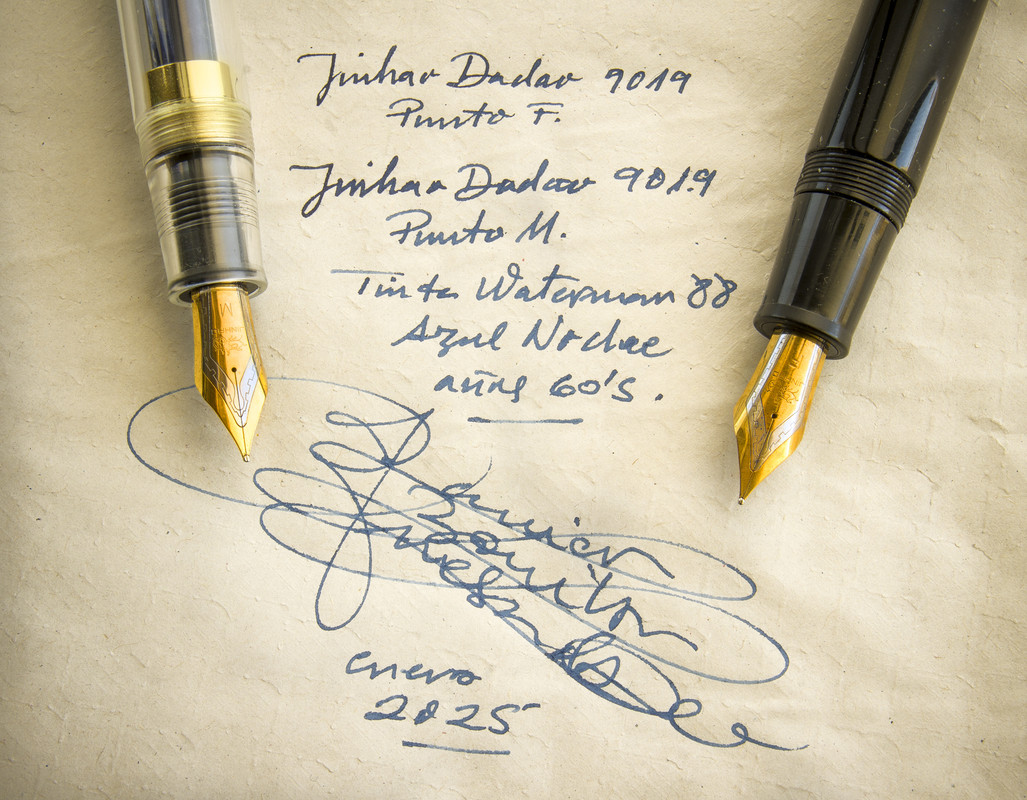 Jinhao Dadao 9019
Punto F.
Jinhao Dadao 9019
Punto M.
Tinta Waterman 88
Azul Noche
años 60's.
Javier
enero
2025
M